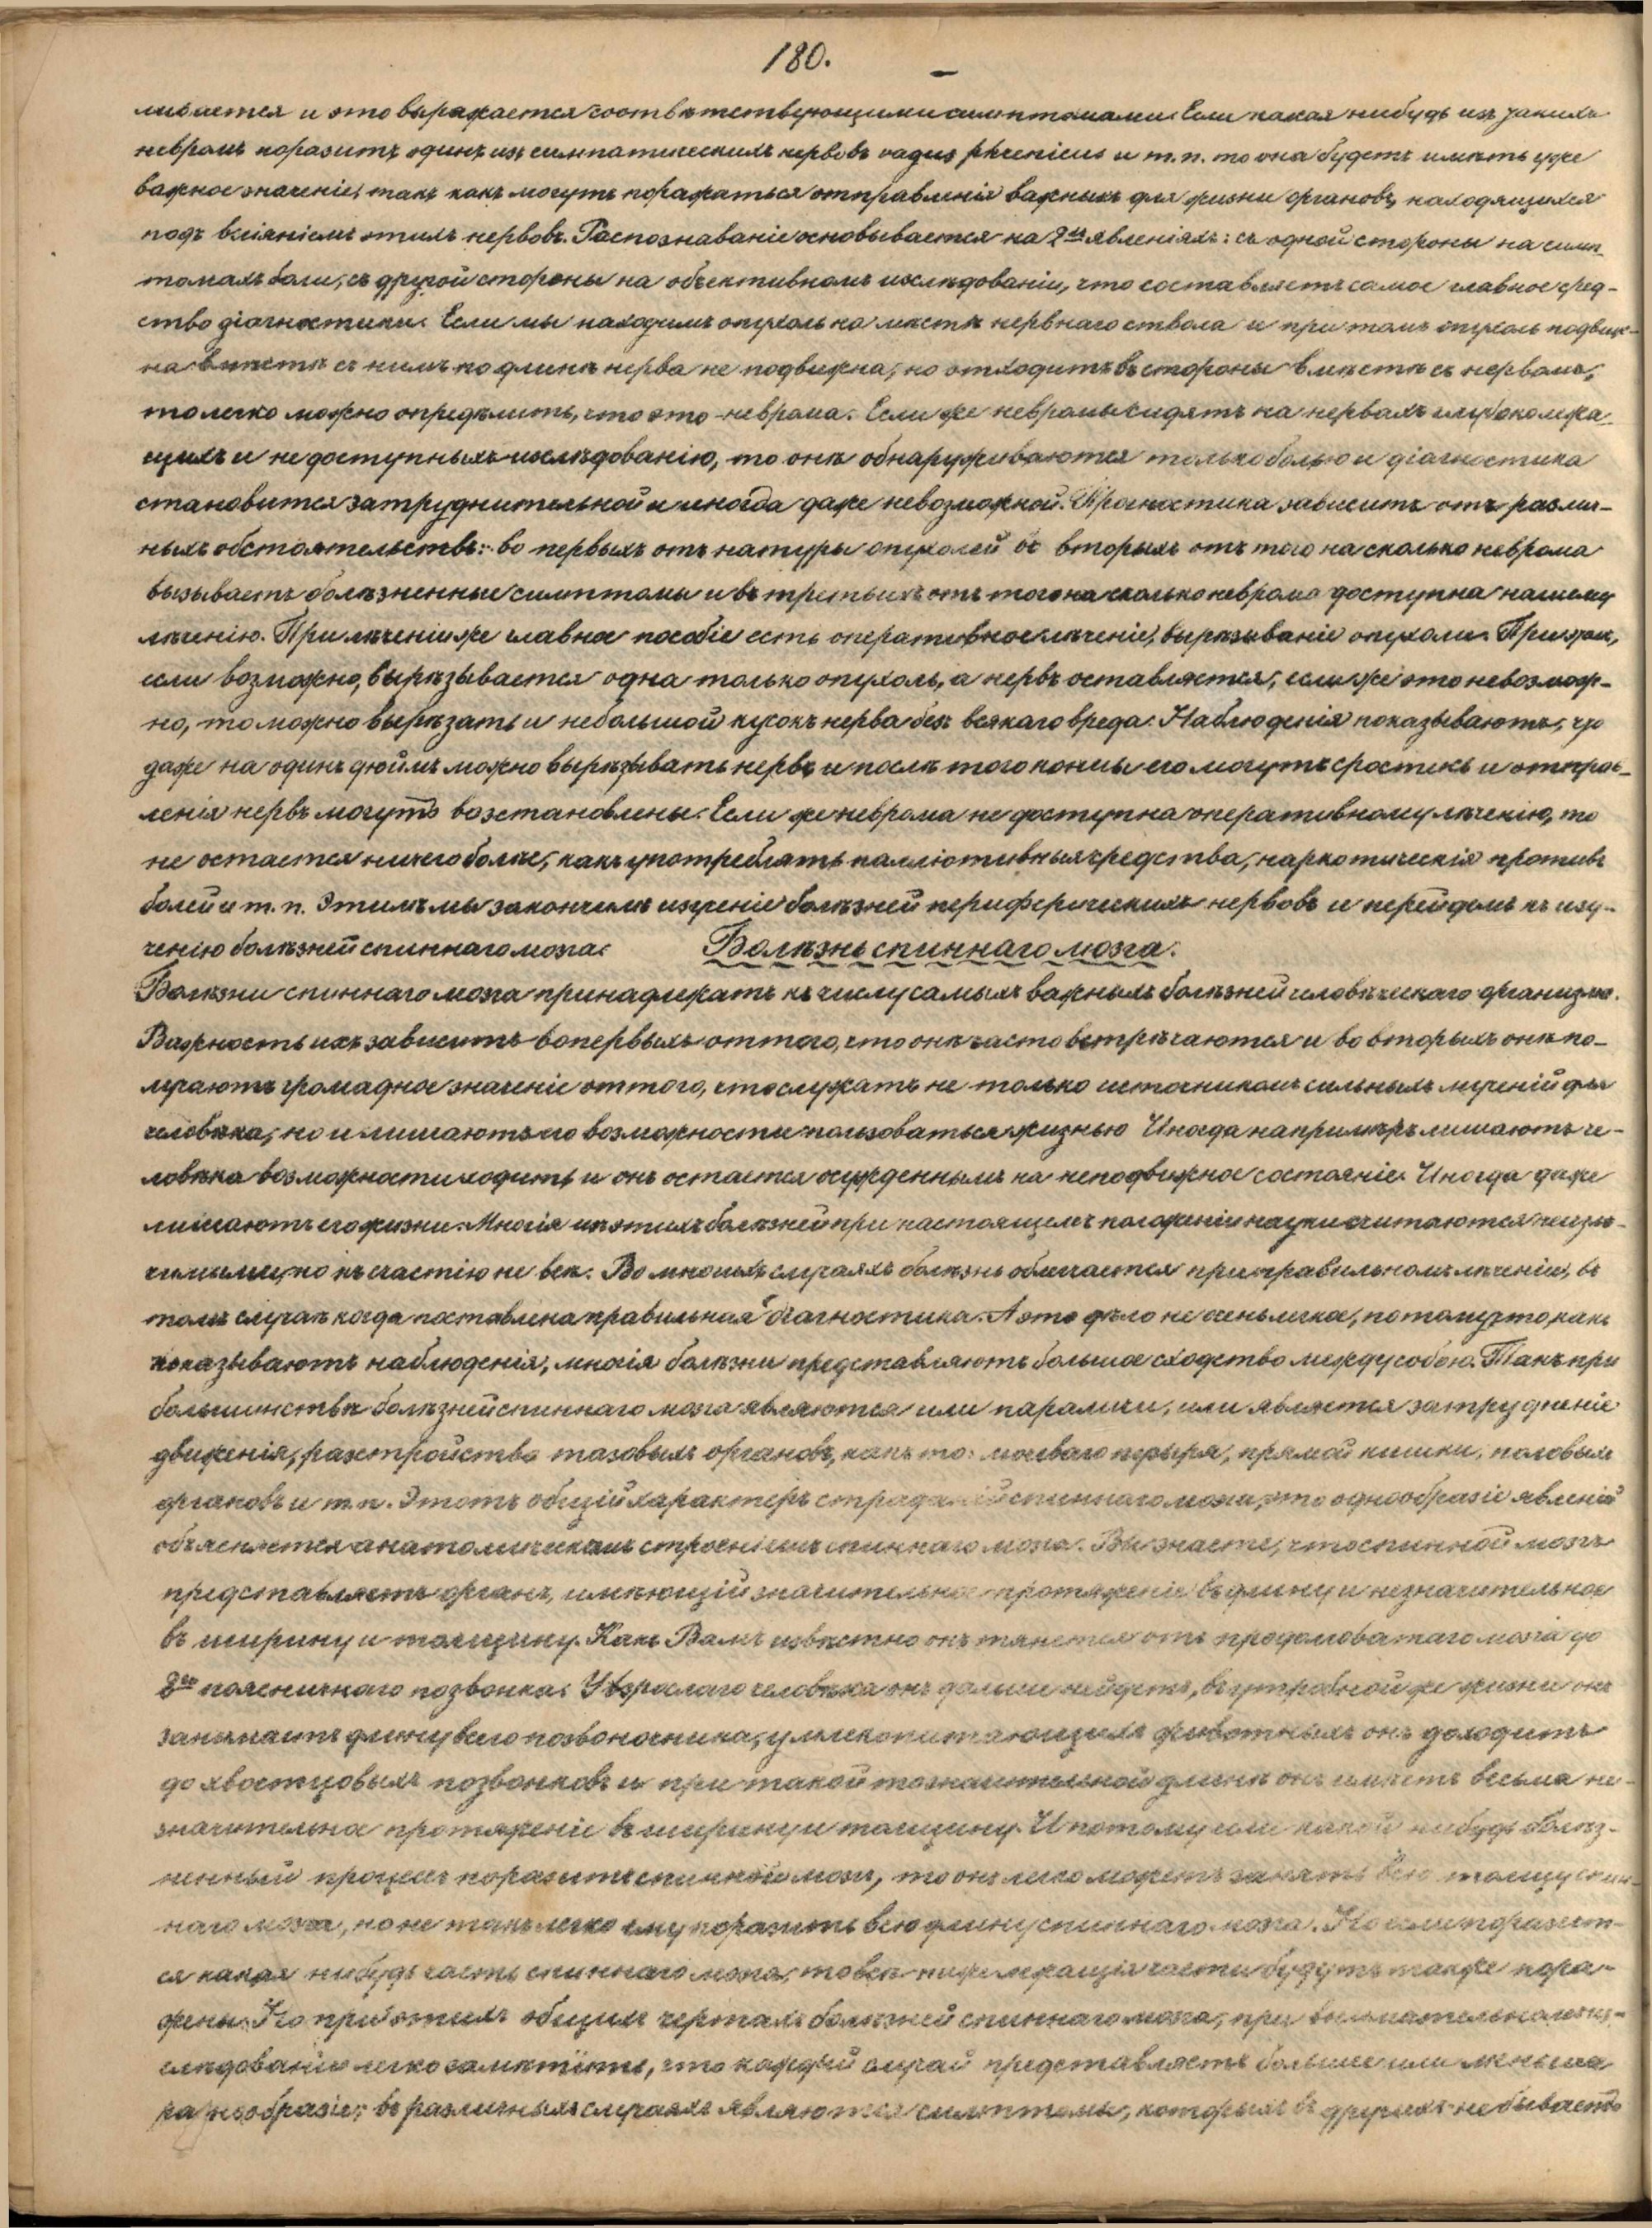 180.
ливается и это выражается соотвѣтствующими симптомами. Если какая нибудь изъ такихъ
невромъ поразитъ одинъ изъ симпатическихъ нервовъ vagus phrenicus и т.п. то она будетъ имѣть уже
важное значеніе, такъ какъ могутъ поражаться отправленія важныхъ для жизни органовъ, находящихся
подъ вліяніемъ этихъ нервовъ. Распознаваніе основывается на 2хъ явленіяхъ: съ одной стороны на симп-
томахъ боли, съ другой стороны на объективномъ изслѣдованіи, что составляетъ самое главное сред-
ство діагностики. Если мы находимъ опухоль на мѣстѣ нервнаго ствола и при томъ опухоль подвиж-
на вмѣстѣ съ нимъ по длинѣ нерва не подвижна, но отходитъ въ стороны вмѣстѣ съ нервомъ,
то легко можно опредѣлить, что это неврома. Если же невромы сидятъ на нервахъ глубоколежа-
щихъ и не доступныхъ изслѣдованію, то онѣ обнаруживаются только болью и діагностика
становится затруднительной и иногда даже невозможной. Прогностика зависитъ отъ различ-
ныхъ обстоятельствъ: во первыхъ отъ натуры опухолей во вторыхъ отъ того на сколько неврома
вызываетъ болѣзненные симптомы и въ третьихъ отъ того на сколько неврома доступна нашему
лѣченію. При лѣченіи же главное пособіе есть оперативное лѣченіе, вырѣзываніе опухоли. При этомъ,
если возможно, вырѣзывается одна только опухоль, а нервъ оставляется, если же это невозмож-
но, то можно вырѣзать и небольшой кусокъ нерва безъ всякаго вреда. Наблюденія показываютъ, что
даже на одинъ дюймъ можно вырѣзывать нервъ и послѣ того концы его могутъ сростись и отправ-
ленія нервъ могутъ возстановлены. Если же неврома не доступна оперативному лѣченію, то
не остается ничего болѣе, какъ употреблять палліотивныя средства, наркотическія противъ
болей и т.п. Этимъ мы закончимъ изученіе болѣзней периферическихъ нервовъ и перейдемъ къ изу-
ченію болѣзней спиннаго мозга. Болѣзнь спиннаго мозга.
Болѣзни спиннаго мозга принадлежатъ къ числу самыхъ важныхъ болѣзней человѣческаго организма.
Важность ихъ зависитъ вопервыхъ оттого, что онѣ часто встрѣчаются и во вторыхъ онѣ по-
лучаютъ громадное значеніе оттого, что служатъ не только источникомъ сильныхъ мученій для
человѣка, но и лишаютъ его возможности пользоваться жизнью Иногда напримѣръ лишаютъ че-
ловѣка возможности ходить и онъ остается осужденнымъ на неподвижное состояніе. Иногда даже
лишаютъ его жизни. Многія изъ этихъ болѣзней при настоящемъ положеніи науки считаются неизлѣ-
чимыми, но къ счастію не всѣ. Во многихъ случаяхъ болѣзнь облегчается при правильномъ лѣченіи, въ
томъ случаѣ когда поставлена правильная діагностика. А это дѣло не очень легкое, потому что, какъ
показываютъ наблюденія, многія болѣзни представляютъ большое сходство между собою. Такъ при
большинствѣ болѣзней спиннаго мозга являются или параличи, или является затрудненіе
движенія, разстройства тазовыхъ органовъ, какъ то: мочеваго пузыря, прямой кишки, половыхъ
органовъ и т.п. Этотъ общій характеръ страданій спиннаго мозга, это однообразіе явленій
объясняется анатомическимъ строеніемъ спиннаго мозга. Вы знаете, что спинной мозгъ
представляетъ органъ, имѣющій значительное протяженіе въ длину и незначительное
въ ширину и толщину. Какъ Вамъ извѣстно онъ тянется отъ продолговатаго мозга до
2го поясничнаго позвонка. У взрослаго человѣка онъ дальше нейдетъ, въ утробной же жизни онъ
занимаетъ длину всего позвоночника, у млекопитающихъ животныхъ онъ доходитъ
до хвостцовыхъ позвонковъ и при такой значительной длинѣ онъ имѣетъ весьма не-
значительное протяженіе въ ширину и толщину. И потому если какой нибудь болѣз-
ненный процессъ поразитъ спинной мозгъ, то онъ легко можетъ занять всю толщу спин-
наго мозга, но не такъ легко ему поразить всю длину спиннаго мозга. Но если поразит-
ся какая нибудь часть спиннаго мозга, то всѣ нижележащія части будутъ также пора-
жены. Но при этихъ общихъ чертахъ болѣзней спиннаго мозга, при внимательномъ из-
слѣдованіи легко замѣтить, что каждый случай представляетъ большее или меньшее
разнообразіе, въ различныхъ случаяхъ являются симптомы, которыхъ въ другихъ не бываетъ